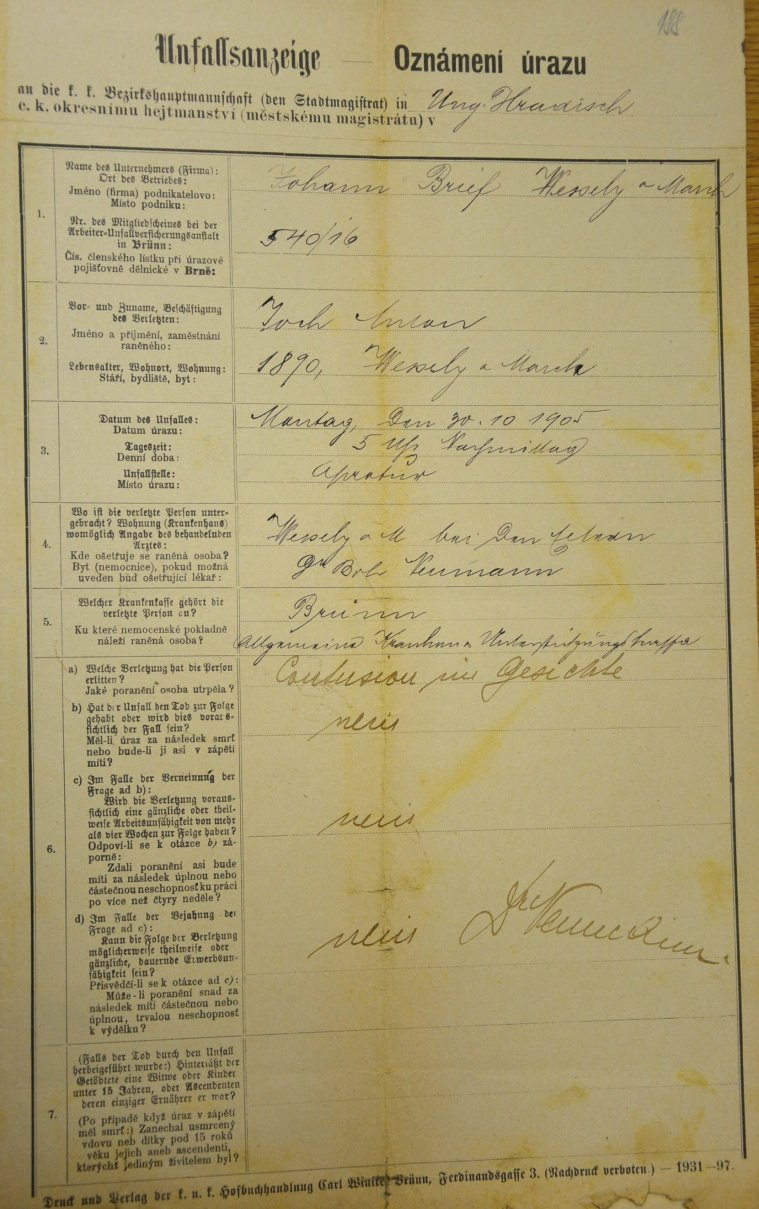 188
Unfallsanzeige — Oznámení úrazu
an die k. k. Bezirkshauptmannschaft (den Stadtmagistrat) in Ung. Hradisch
c. k. okresnímu hejtmanství (městskému magistrátu) v
1.
Name des Unternehmers (Firma):
Ort des Betriebes:
Jméno (firma) podnikatelovo:
Místo podniku:
Johann Brief Wessely a March
Nr. des Mitgliedscheines bei der
Arbeiter-Unfallversicherungsanstalt
in Brünn:
Čís. členského lístku při úrazové
pojišťovně dělnické v Brně:
540/16
2.
Vor- und Zuname, Beschäftigung
des Verletzten:
Jméno a příjmení, zaměstnání
raněného:
Anton
Lebensalter, Wohnort, Wohnung:
Stáří, bydliště, byt:
1890, Wessely a March
3.
Datum des Unfalles:
Datum úrazu:
Montag, den 30. 10 1905
Tageszeit:
Denní doba:
5 Uhr Nachmittag
Unfallstelle:
Místo úrazu:
Apretur
4.
Wo ist die verletzte Person unter-
gebracht? Wohnung (Krankenhaus)
womöglich Angabe des behandelnden
Arztes:
Kde ošetřuje se raněná osoba?
Byt (nemocnice), pokud možná
uveden buď ošetřující lékař:
Wessely a M bei den Eltern
Neumann
5.
Welcher Krankenkasse gehört die
verletzte Person an?
Ku které nemocenské pokladně
náleží raněná osoba?
Brünn
Allgemeine Kranken u Unterstützungskassa
6.
a) Welche Verletzung hat die Person
erlitten?
Jaké poranění osoba utrpěla?
Contusion im Gesichte
b) Hat der Unfall den Tod zur Folge
gehabt oder wird dies voraus-
sichtlich der Fall sein?
Měl-li úraz za následek smrť
nebo bude-li ji asi v zápětí
míti?
nein
c) Im Falle der Verneinung der
Frage ad b):
Wird die Verletzung voraus-
sichtlich eine gänzliche oder theil-
weise Arbeitsunfähigkeit von mehr
als vier Wochen zur Folge haben?
Odpoví-li se k otázce b) zá-
porně:
Zdali poranění asi bude
míti za následek úplnou nebo
částečnou neschopnosť ku práci
po více než čtyry neděle?
nein
d) Im Falle der Bejahung der
Frage ad c):
Kann die Folge der Verletzung
möglicherweise theilweise oder
gänzliche, dauernde Erwerbsun-
fähigkeit sein?
Přisvědčí-li se k otázce ad c):
Může-li poranění snad za
následek míti částečnou nebo
úplnou, trvalou neschopnosť
k výdělku?
nein Dr Neumann
7.
(Falls der Tod durch den Unfall
herbeigeführt wurde:) Hinterläßt der
Getödtete eine Witwe oder Kinder
unter 15 Jahren, oder Ascendenten
deren einziger Ernährer er war?
(Po případě když úraz v zápětí
měl smrť:) Zanechal usmrcený
vdovu neb dítky pod 15 roků
věku jejich aneb ascendenti,
kterýchž jediným živitelem byl?
Druck und Verlag der k. u. k. Hofbuchhandlung Carl Winiker Brünn, Ferdinandsgasse 3. (Nachdruck verboten.) — 1931—97.